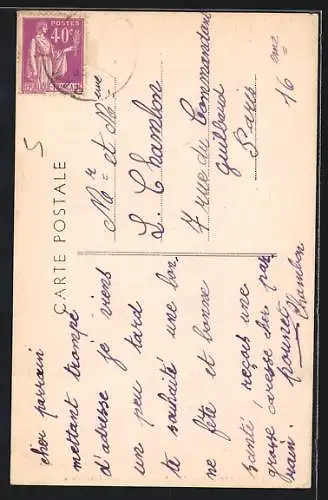 POSTES
40c
CARTE POSTALE
cher parrain
mettant trompé
d'adresse je viens
un peu tard
te souhaité une bon
ne fête et bonne
santé reçois une
grosse caresse der par
rain.
Chambon
Mr et Mme
L. Chambon
7 rue du Commandant
Guilbaud
Paris 16 eme
5